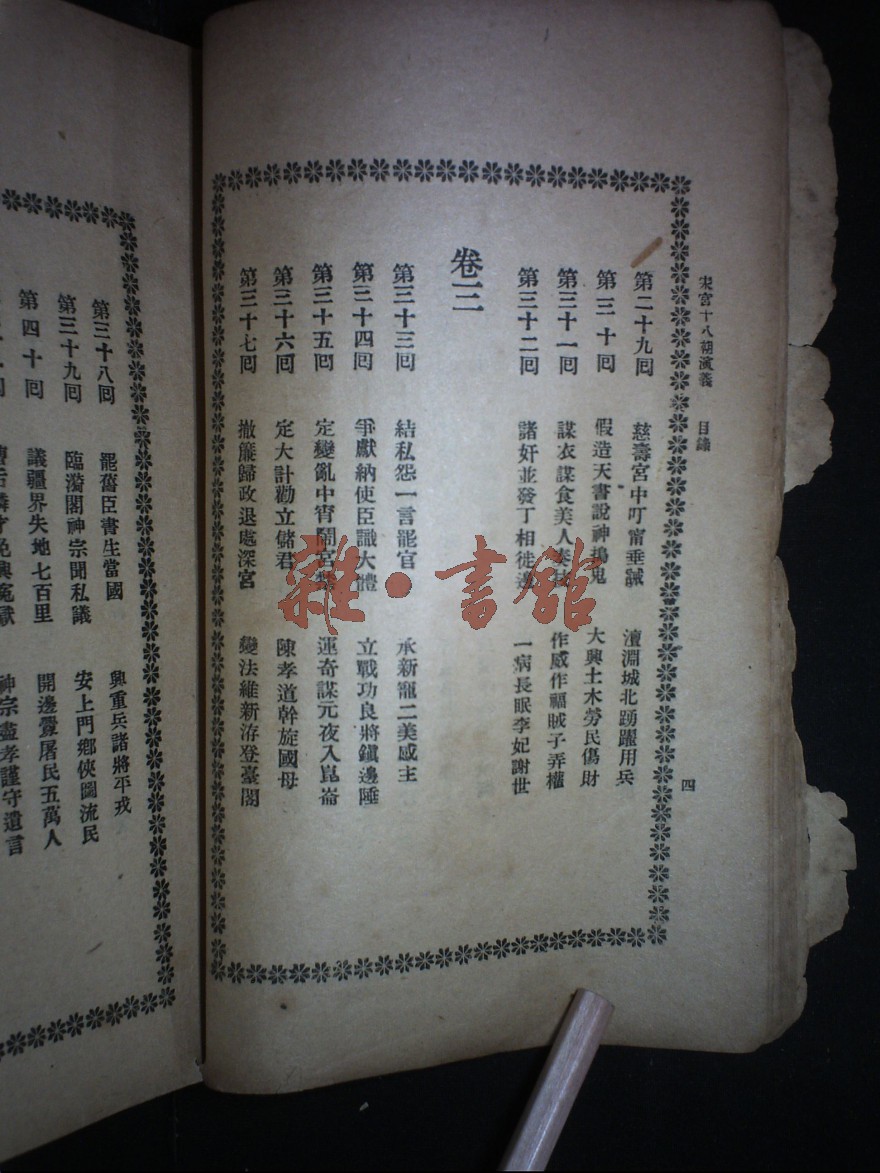 宋宮十八朝演義　目錄　四
第二十九回　慈壽宮中叮甯垂誡　澶淵城北踴躍用兵
第三十回　假造天書說神搗鬼　大興土木勞民傷財
第三十一回　謀衣謀食美人　作威作福賊子弄權
第三十二回　諸奸並發丁相徙邊　一病長眠李妃謝世
卷三
第三十三回　結私怨一言罷官　承新寵二美惑主
第三十四回　爭獻納使臣識大體　立戰功良將鎭邊陲
第三十五回　定變亂中宵鬧宮禁　運奇謀元夜入崑崙
第三十六回　定大計勸立儲君　陳孝道幹旋國母
第三十七回　撤簾歸政退處深宮　變法維新洊登臺閣
第三十八回　罷舊臣書生當國　興重兵諸將平戎
第三十九回　臨漪閣神宗聞私議　安上門鄉俠圖流民
第四十回　議疆界失地七百里　開邊釁屠民五萬人
神宗盡孝謹守遺言
雜·書館